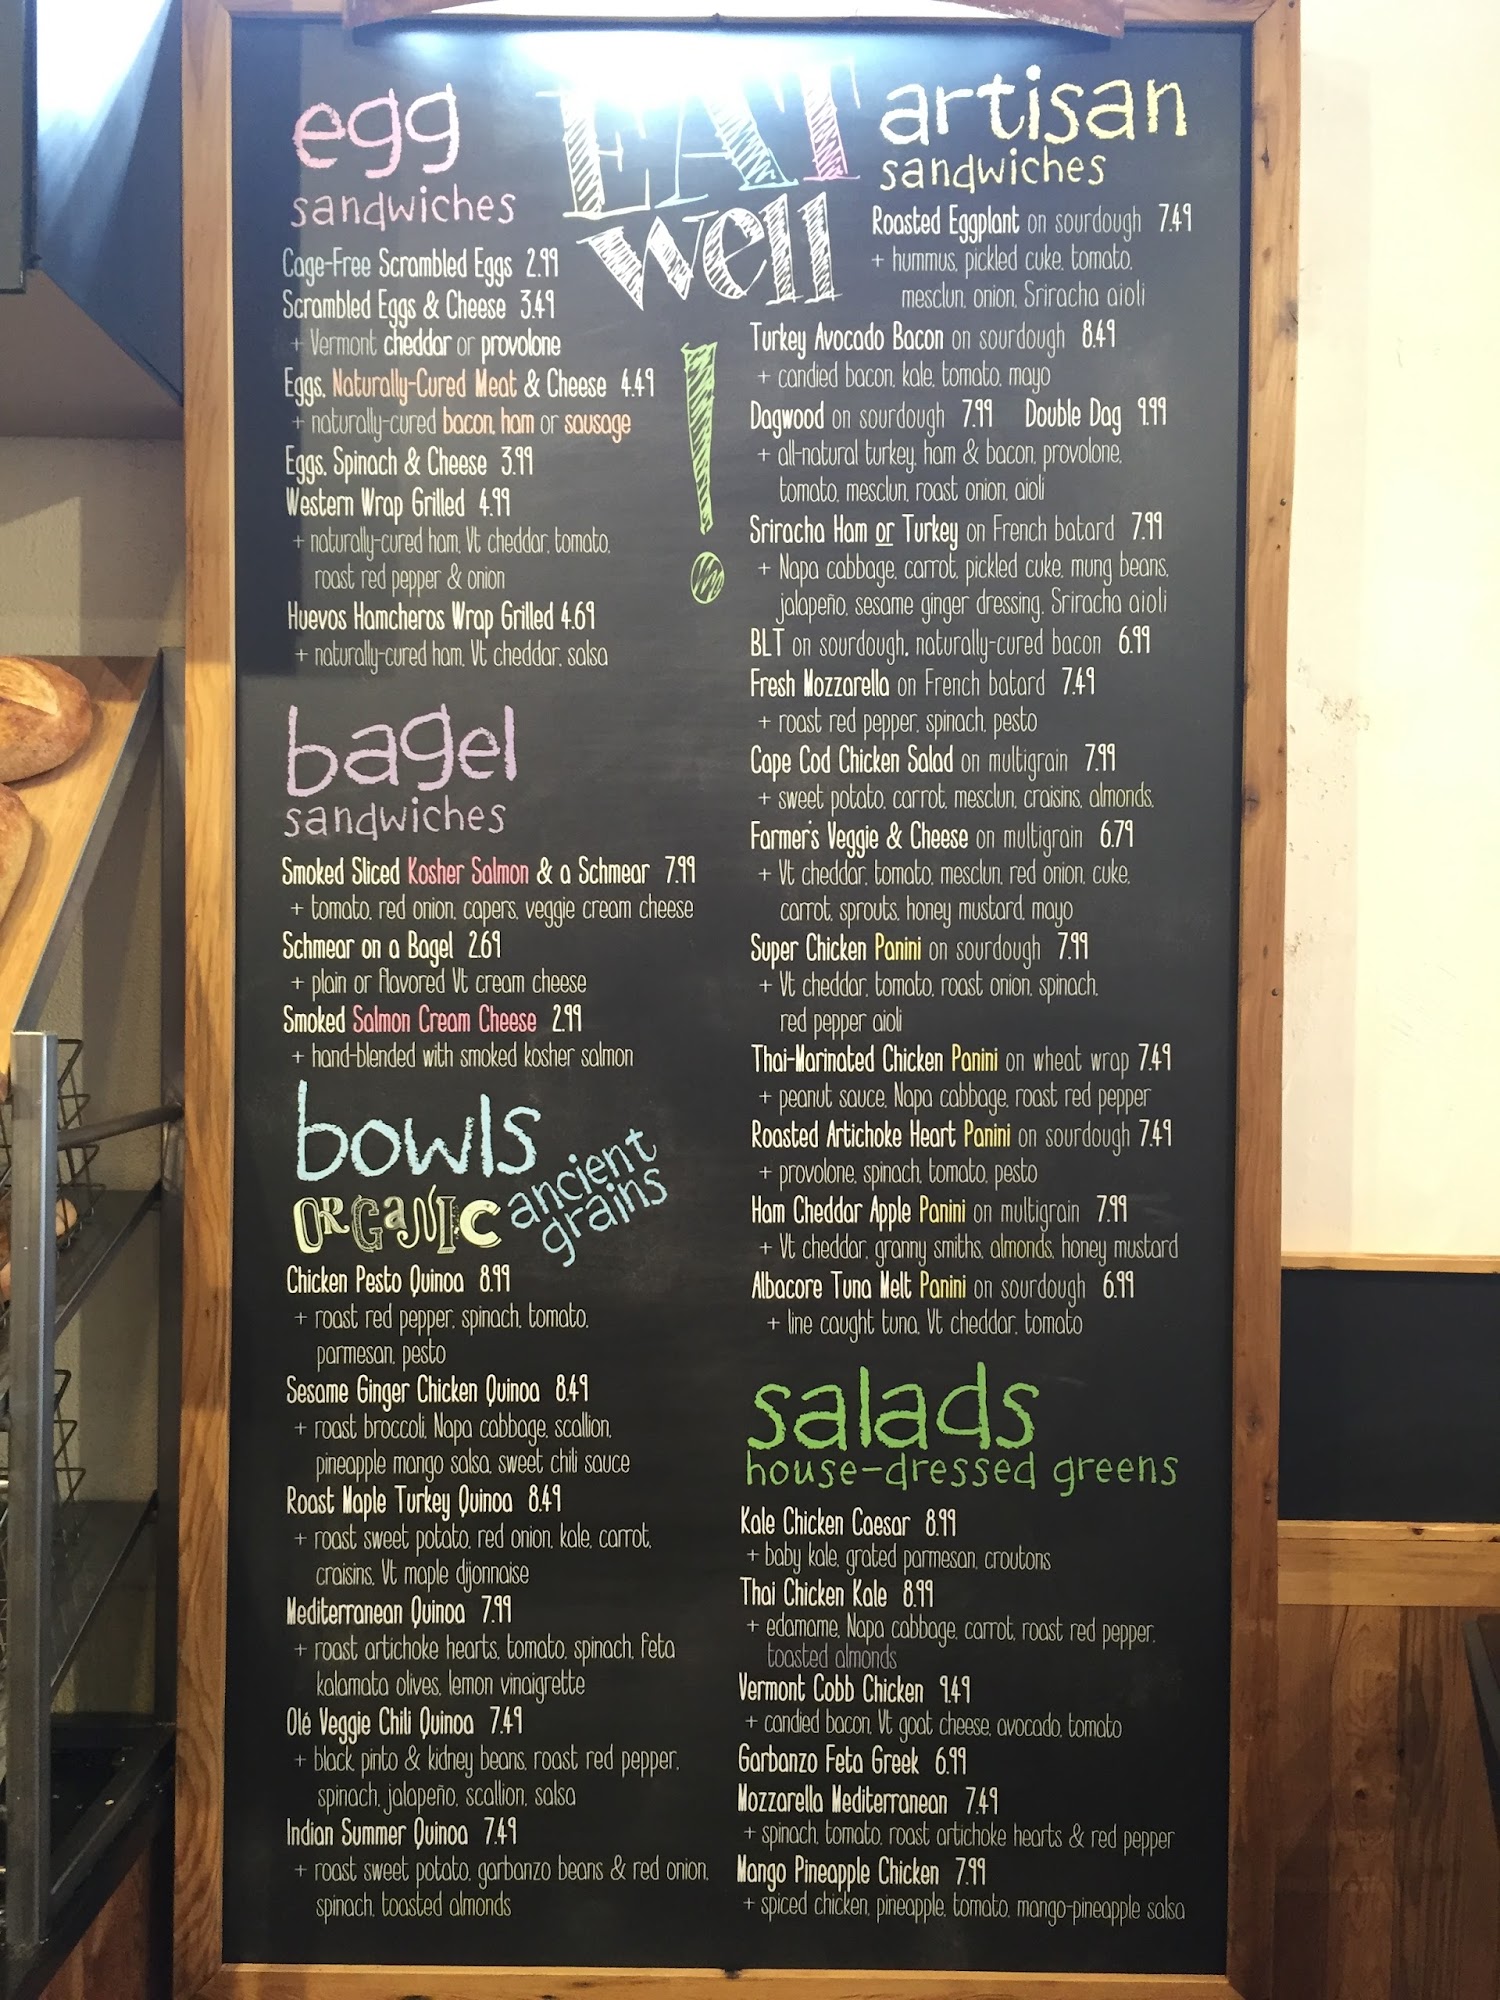 EAT
well
!
egg
sandwiches
Cage-Free Scrambled Eggs 2.99
Scrambled Eggs & Cheese 3.49
+ Vermont cheddar or provolone
Eggs, Naturally-Cured Meat & Cheese 4.49
+ naturally-cured bacon, ham or sausage
Eggs, Spinach & Cheese 3.99
Western Wrap Grilled 4.99
+ naturally-cured ham, Vt cheddar, tomato,
roast red pepper & onion
Huevos Hamcheros Wrap Grilled 4.69
+ naturally-cured ham, Vt cheddar, salsa
bagel
sandwiches
Smoked Sliced Kosher Salmon & a Schmear 7.99
+ tomato, red onion, capers, veggie cream cheese
Schmear on a Bagel 2.69
+ plain or flavored Vt cream cheese
Smoked Salmon Cream Cheese 2.99
+ hand-blended with smoked kosher salmon
bowls
ORGANIC ancient
grains
Chicken Pesto Quinoa 8.99
+ roast red pepper, spinach, tomato,
parmesan, pesto
Sesame Ginger Chicken Quinoa 8.49
+ roast broccoli, Napa cabbage, scallion,
pineapple mango salsa, sweet chili sauce
Roast Maple Turkey Quinoa 8.49
+ roast sweet potato, red onion, kale, carrot,
craisins, Vt maple dijonnaise
Mediterranean Quinoa 7.99
+ roast artichoke hearts, tomato, spinach, feta
kalamata olives, lemon vinaigrette
Olé Veggie Chili Quinoa 7.49
+ black, pinto & kidney beans, roast red pepper,
spinach, jalapeño, scallion, salsa
Indian Summer Quinoa 7.49
+ roast sweet potato, garbanzo beans & red onion,
spinach, toasted almonds
artisan
sandwiches
Roasted Eggplant on sourdough 7.49
+ hummus, pickled cuke, tomato,
mesclun, onion, Sriracha aioli
Turkey Avocado Bacon on sourdough 8.49
+ candied bacon, kale, tomato, mayo
Dagwood on sourdough 7.99 Double Dag 9.99
+ all-natural turkey, ham & bacon, provolone,
tomato, mesclun, roast onion, aioli
Sriracha Ham or Turkey on French batard 7.99
+ Napa cabbage, carrot, pickled cuke, mung beans,
jalapeño, sesame ginger dressing, Sriracha aioli
BLT on sourdough, naturally-cured bacon 6.99
Fresh Mozzarella on French batard 7.49
+ roast red pepper, spinach, pesto
Cape Cod Chicken Salad on multigrain 7.99
+ sweet potato, carrot, mesclun, craisins, almonds,
Farmer's Veggie & Cheese on multigrain 6.79
+ Vt cheddar, tomato, mesclun, red onion, cuke,
carrot, sprouts, honey mustard, mayo
Super Chicken Panini on sourdough 7.99
+ Vt cheddar, tomato, roast onion, spinach,
red pepper aioli
Thai-Marinated Chicken Panini on wheat wrap 7.49
+ peanut sauce, Napa cabbage, roast red pepper
Roasted Artichoke Heart Panini on sourdough 7.49
+ provolone, spinach, tomato, pesto
Ham Cheddar Apple Panini on multigrain 7.99
+ Vt cheddar, granny smiths, almonds, honey mustard
Albacore Tuna Melt Panini on sourdough 6.99
+ line caught tuna, Vt cheddar, tomato
salads
house-dressed greens
Kale Chicken Caesar 8.99
+ baby kale, grated parmesan, croutons
Thai Chicken Kale 8.99
+ edamame, Napa cabbage, carrot, roast red pepper,
toasted almonds
Vermont Cobb Chicken 9.49
+ candied bacon, Vt goat cheese, avocado, tomato
Garbanzo Feta Greek 6.99
Mozzarella Mediterranean 7.49
+ spinach, tomato, roast artichoke hearts & red pepper
Mango Pineapple Chicken 7.99
+ spiced chicken, pineapple, tomato, mango-pineapple salsa